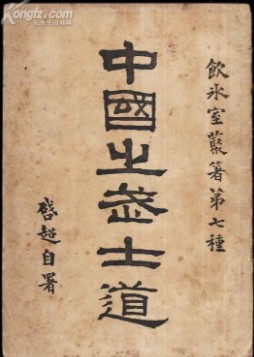 Kongfz.com
飲氷室叢著第七種
中國之武士道
啓超自署